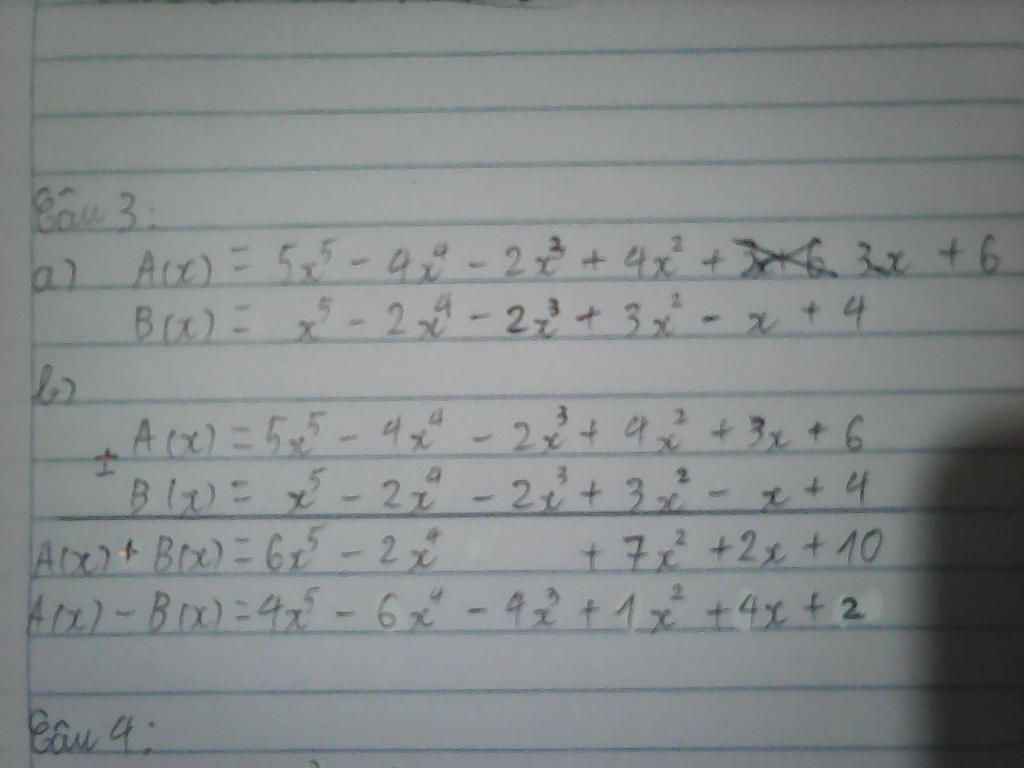 Câu 3:
a) A(x) = 5x⁵ - 4x⁴ - 2x³ + 4x² + 3x + 6
B(x) = x⁵ - 2x⁴ - 2x³ + 3x² - x + 4
b)
A(x) = 5x⁵ - 4x⁴ - 2x³ + 4x² + 3x + 6
±
B(x) = x⁵ - 2x⁴ - 2x³ + 3x² - x + 4
A(x) + B(x) = 6x⁵ - 2x⁴ + 7x² + 2x + 10
A(x) - B(x) = 4x⁵ - 6x⁴ - 4x³ + 1x² + 4x + 2
Câu 4: